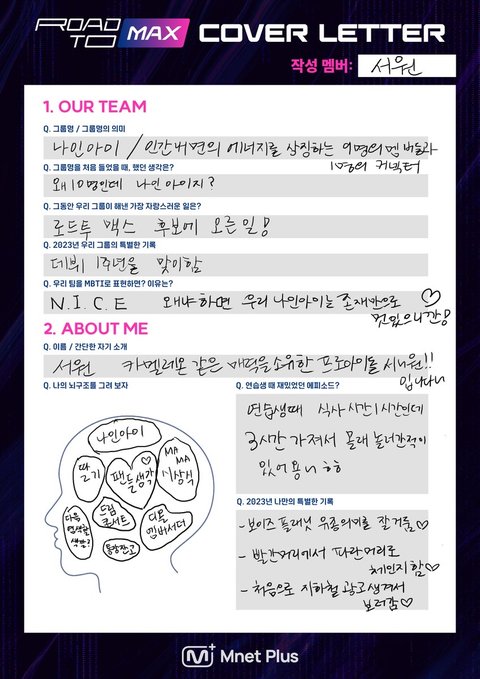 ROAD TO MAX COVER LETTER
작성 멤버: 서원
1. OUR TEAM
Q. 그룹명 / 그룹명의 의미
나인아이 / 인간내면의 에너지를 상징하는 9명의 멤버들과
1명의 커넥터
Q. 그룹명을 처음 들었을 때, 했던 생각은?
왜 10명인데 나인아이지?
Q. 그동안 우리 그룹이 해낸 가장 자랑스러운 일은?
로드투 맥스 후보에 오른 일!
Q. 2023년 우리 그룹의 특별한 기록
데뷔 1주년을 맞이함
Q. 우리 팀을 MBTI로 표현하면? 이유는?
N.I.C.E 왜냐하면 우리 나인아이는 존재만으로
멋있으니깐!
2. ABOUT ME
Q. 이름 / 간단한 자기 소개
서원 카멜레온 같은 매력을 소유한 프로아이돌 서원!!
입니다
Q. 나의 뇌구조를 그려 보자
나인아이
딸기
팬들생각
MAMA 시상식
드림콘서트
다음 염색할 색깔?
통장잔고
디올 앰버서더
Q. 연습생 때 재밌었던 에피소드?
연습생때 식사시간 1시간인데
3시간 가져서 몰래 놀러간적이
있어용 ㅎㅎ
Q. 2023년 나만의 특별한 기록
- 보이즈 플래닛 유종의미를 잘 거둠♡
- 빨간머리에서 파란머리로
체인지함♡
- 처음으로 지하철 광고 생겨서
보러감♡
M+ Mnet Plus